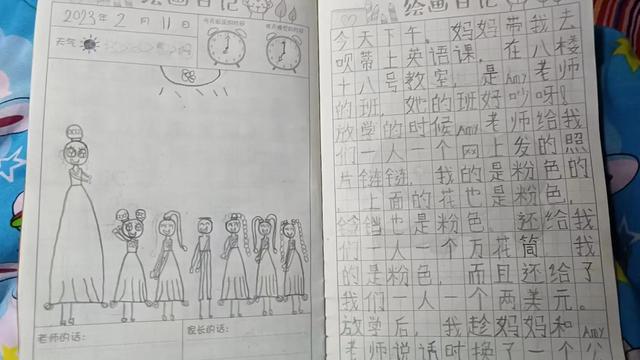 绘画日记
2023年2月11日
今天起床的时间
昨天睡觉的时间
天气
老师的话:
家长的话:
绘画日记
今天下午。妈妈带我去
呗蒂上英语课,在八楼
十八号教室,是Amy老师
的班,她的班好吵呀!
放学的时候Amy老师给我
们一人一个网上发的照
片链链,我的是粉色的
,上面的花也是粉色,
铃铛也是粉色 还给我
们一人一个万花筒 我
的是粉色,而且还给了
我们一人一个两美元。
放学后,我趁妈妈和Amy
老师说话时换了一个